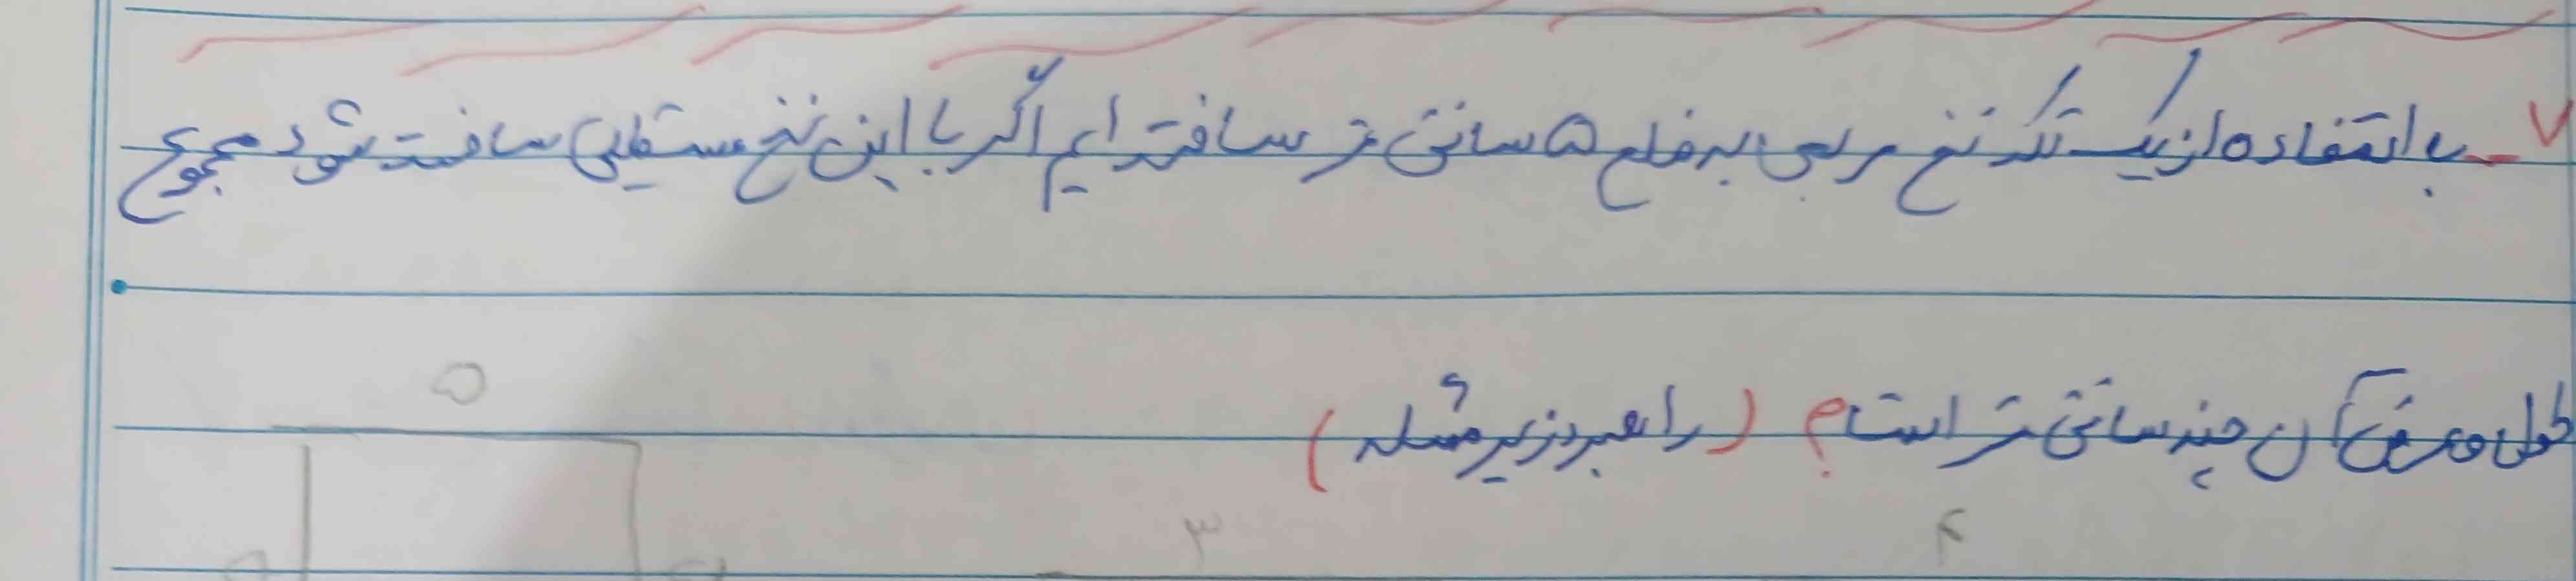 ۷ - با استفاده از یک تکه نخ مربعی به ضلع ۵ سانتی متر ساخته ایم اگر با این نخ مستطیلی ساخته شود مجموع
طول و عرض آن چند سانتی متر است؟ (راهبرد زیر مسئله)
۵
۴ ۳
۵ ۵